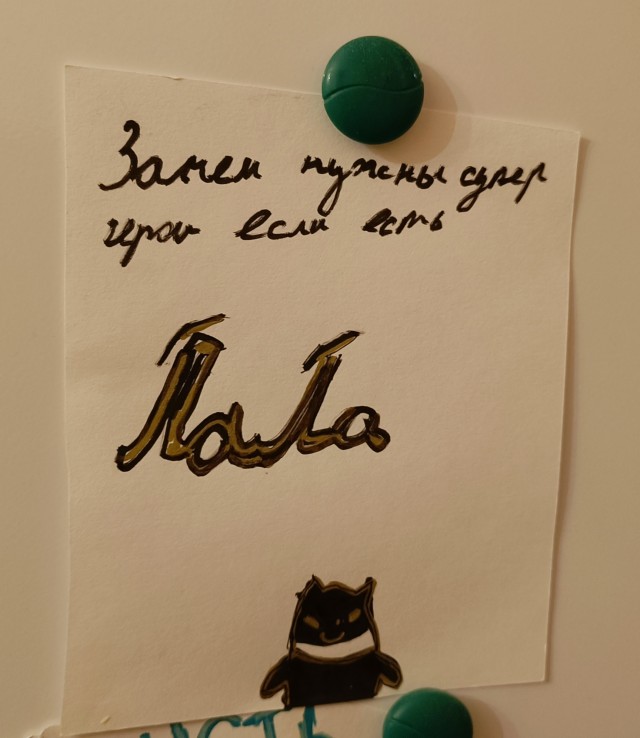 Зачем нужны супер
герои если есть
ПаПа